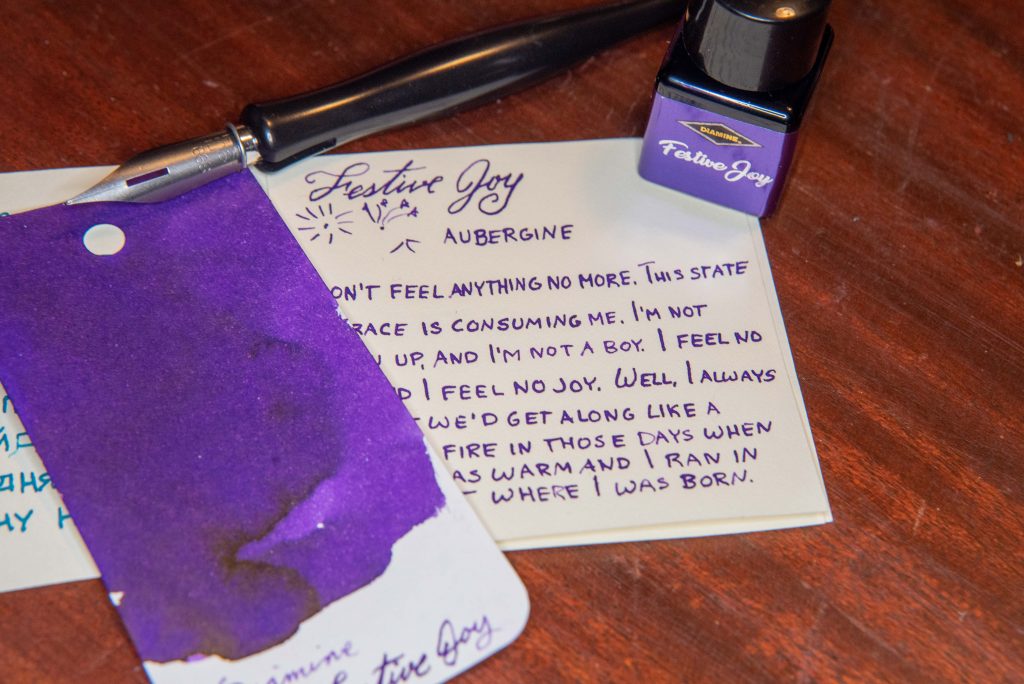 DIAMINE
Festive Joy
Festive Joy
AUBERGINE
ON'T FEEL ANYTHING NO MORE. THIS STATE
RACE IS CONSUMING ME. I'M NOT
UP, AND I'M NOT A BOY. I FEEL NO
I FEEL NO JOY. WELL, I ALWAYS
WE'D GET ALONG LIKE A
FIRE IN THOSE DAYS WHEN
AS WARM AND I RAN IN
WHERE I WAS BORN.
Diamine
Festive Joy